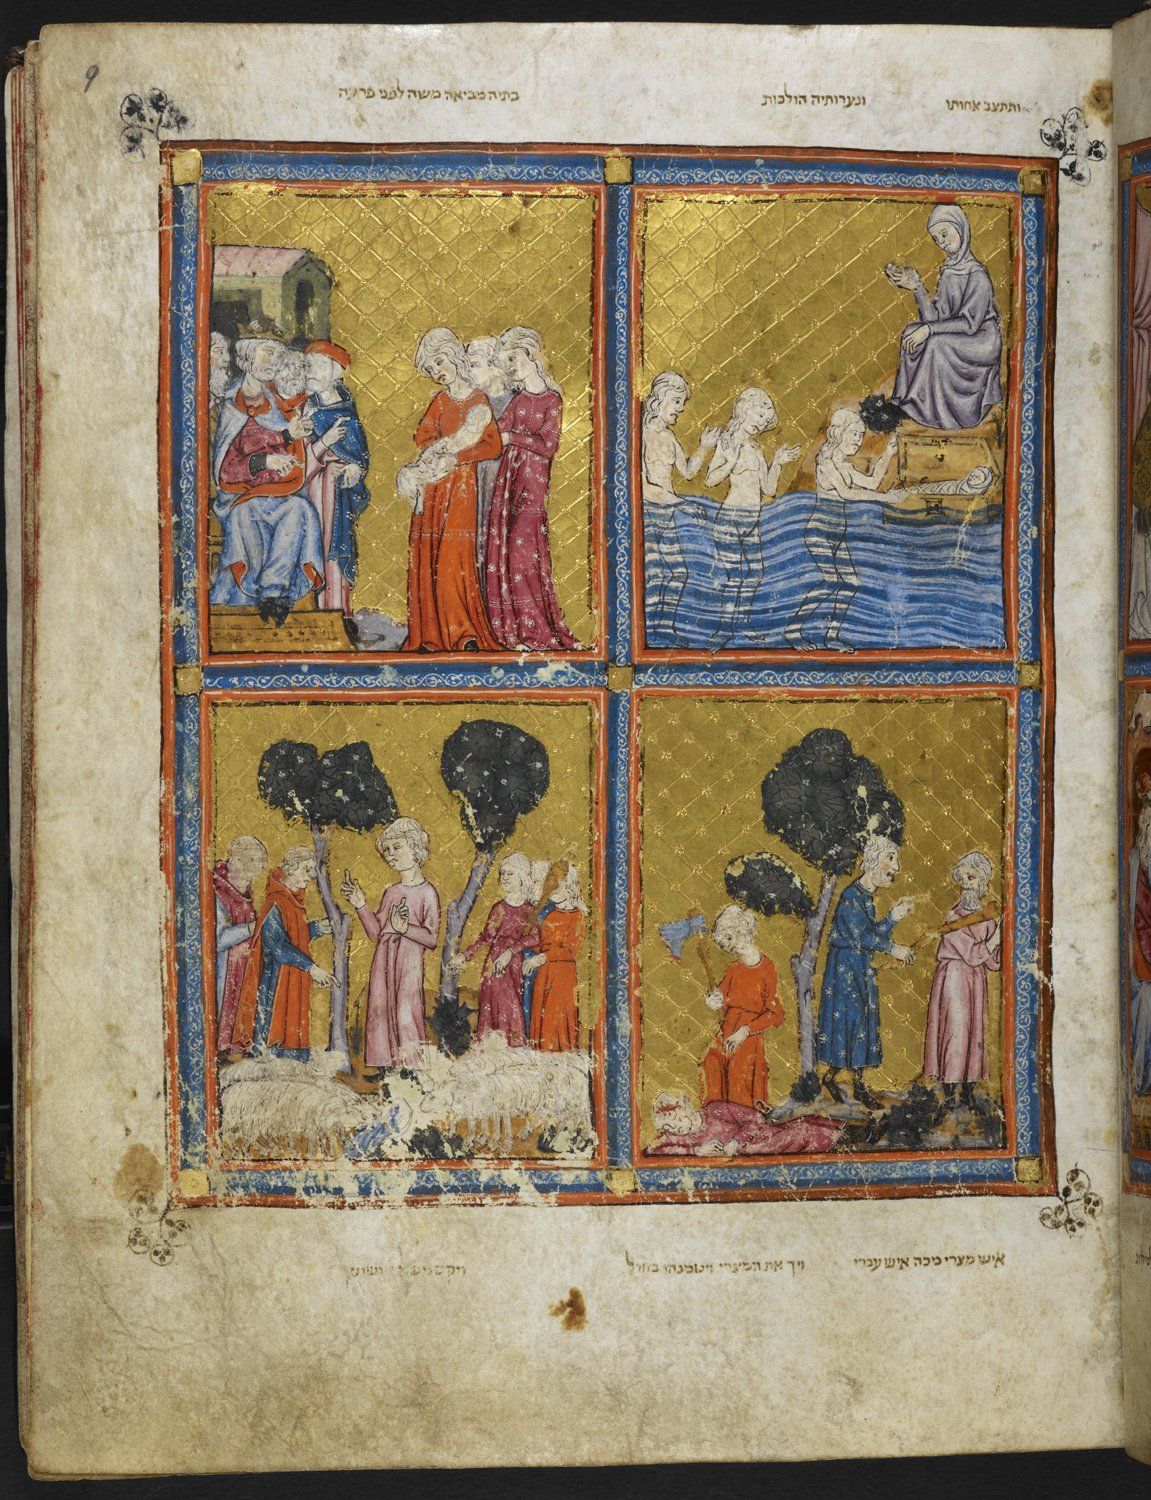 ותתצב אחותו
ונערותיה הולכות
בתיה מביאה משה לפני פרעה
איש מצרי מכה איש עברי
ויך את המצרי ויטמנהו בחול
9